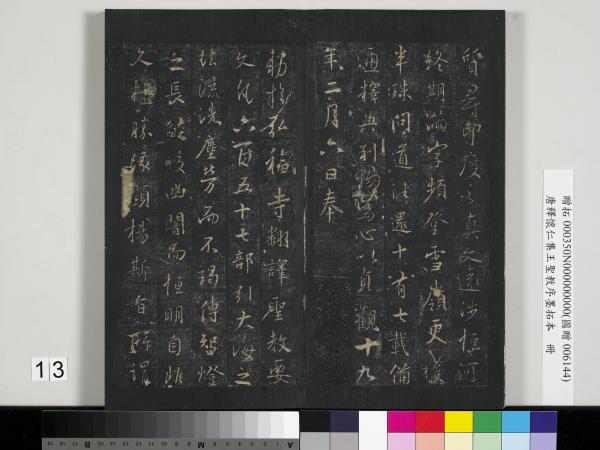 質尋印度之真文遠涉恒河
終期滿字頻登雪嶺更獲
半珠問道法還十有七載備
通釋典利物為心以貞觀十九
年二月六日奉
勑於弘福寺翻譯聖教要
文凡六百五十七部引大海之
法流洗塵勞而不竭傳智燈
之長焰皎幽闇而恒明自非
久植勝緣顯揚斯旨所謂
贈拓 000350N000000000(國贈 006144)
唐釋懷仁集王聖教序墨拓本 冊
13